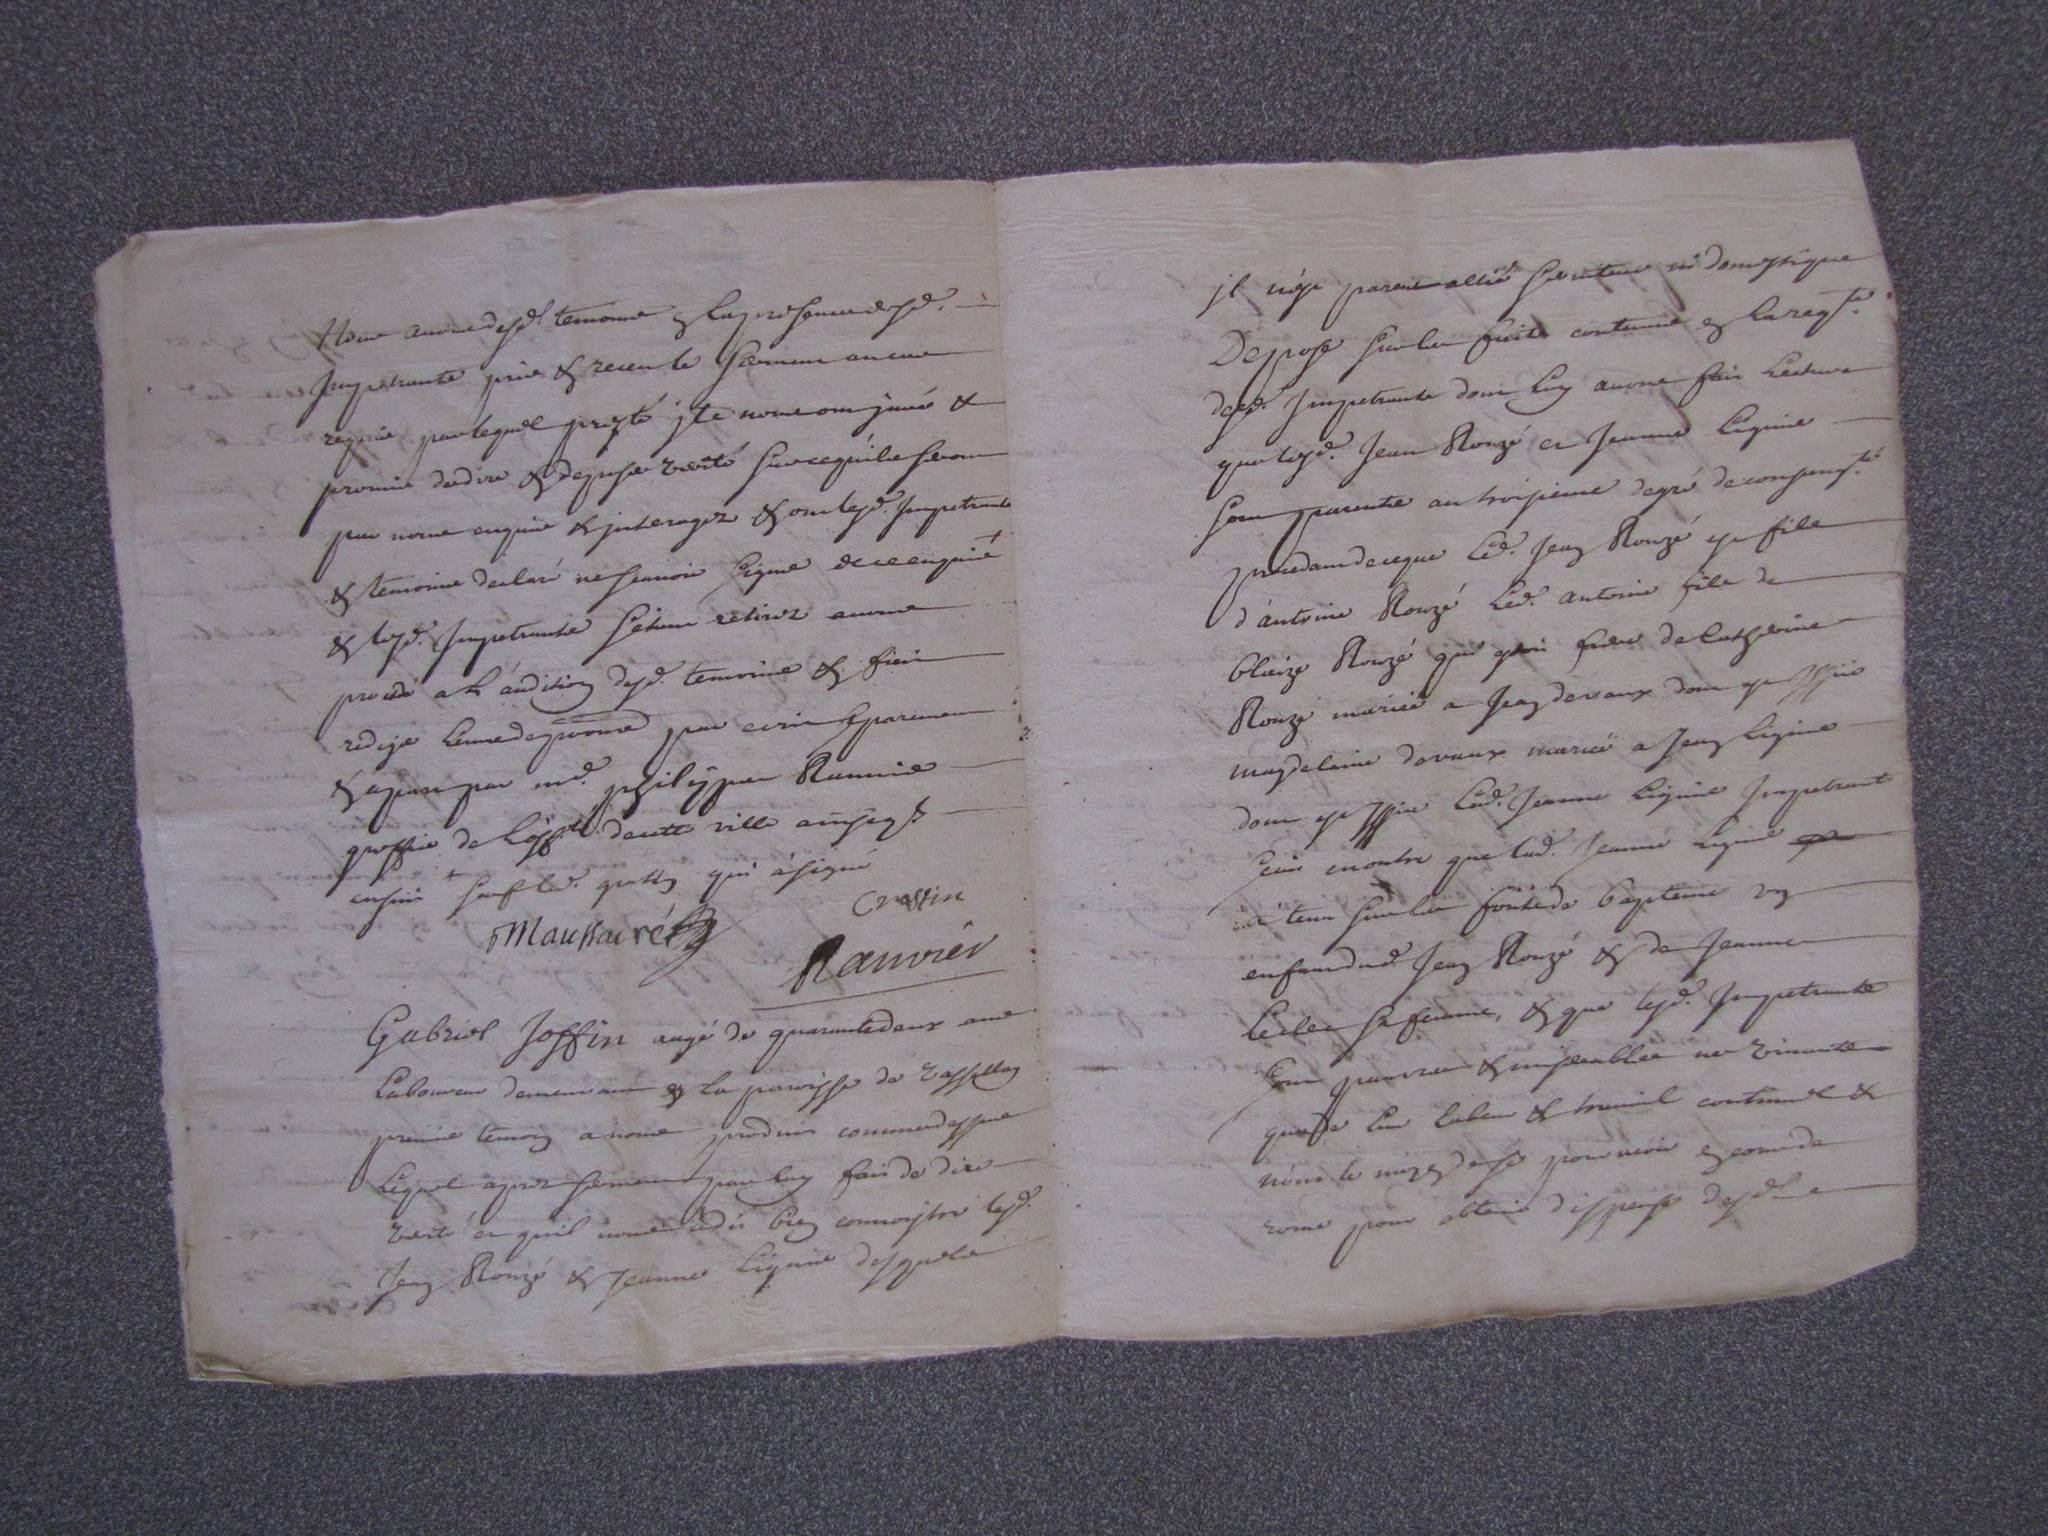 Nous avons desd. temoins en la presence desd.
Impetrants pris & receu le serment au cas
requis par lequel presté ils nous ont juré &
promis de dire & deposer verité sur ce quils seront
par nous enquis & interogez & ont lesd. Impetrants
& temoins declaré ne scavoir signer de ce enquis
& lesd. Impetrants s'etant retirez avons
procédé a l'audition desd. temoins & fait
rediger leurs depositions par ecrit separement
& apart par md. philippes Rauvier
greffier de l'off.té de cette ville
ensuit sauf led. qui a signé
Maussairé
Crossin
Rauvier
Gabriel Joffin aagé de quarante deux ans
Laboureur demeurant en la paroisse de
premier temoin a nous produit comme dessus
Lequel apres serment par luy fait de dire
verité en quil nous a dit bien connoistre lesd.
Jean Rouzé & Jeanne Liquine desquels
il n'est parent allié serviteur ni domestique
Depose sur les faits contenus en la req.te
desd. Impetrants dont luy avons fait Lecture
que lesd. Jean Rouzé et Jeanne Liquine
sont parents au troisieme degré de consang.té
procedant de ce que Led. Jean Rouzé est fils
d'antoine Rouzé Led. antoine fils de
blaize Rouzé qui etoit frere de Catherine
Rouzé mariée a Jean devaux dont est issüe
magdelaine devaux mariée a Jean Liquine
dont est issue Lad. Jeanne Liquine Impetrante
Scait en outre que lad. Jeanne Liquine
a tenu sur les fonts de baptême un
enfant dud. Jean Rouzé & de Jeanne
Lecler sa femme, & que lesd. Impetrants
sont pauvres & miserables ne vivants
que de leur labeur & travail continuel &
n'ont le moyen de se pourvoir en cour de
rome pour obtenir dispense desd.